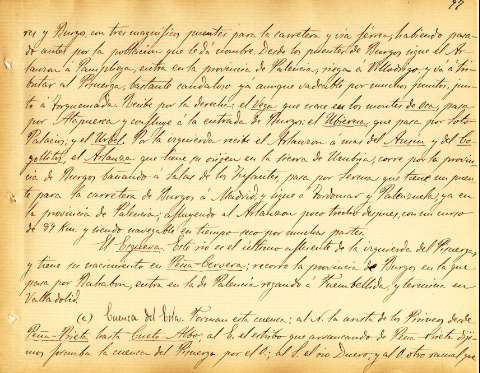 97
res y Burgos, con tres magníficos puentes para la carretera y vía férrea, habiendo pasa-
do antes por la población que le dá nombre. Desde los puentes de Burgos sigue el Ar-
lanzón á Pampliega, entra en la provincia de Palencia, riega á Villodrigo, y vá á tri-
butar al Pisuerga, bastante caudaloso ya aunque vadeable por muchos puntos, jun-
to á Torquemada. Recibe por la derecha: el Vena que nace en los montes de Oca, pasa
por Atapuerca y confluye á la entrada de Burgos; el Ubierna que pasa por Soto
Palacios; y el Urbel. Por la izquierda recibe el Arlanzón á mas del Ausin y del Co-
gollitos, el Arlanza que tiene su origen en la sierra de Umbria, corre por la provin-
cia de Burgos bañando á Salas de los Infantes, pasa por Lerma que tiene un puen-
te para la carretera de Burgos á Madrid y sigue á Tordomar y Palenzuela, ya en
la provincia de Palencia, afluyendo al Arlanzon poco trecho despues, con un curso
de Km. y siendo navegable en tiempo seco por muchas partes.
El Esgueva. Este río es el último afluente de la izquierda del Pisuerga,
y tiene su nacimiento en Peña-Cervera; recorre la provincia de Burgos en la que
pasa por Bahabon, entra en la de Palencia regando á Fuembellida, y termina en
Valladolid.
(c) Cuenca del Esla. Forman esta cuenca; al N. la arista del Pirineo desde
Peña-Prieta hasta Cueto Albo; al E. el estribo que arrancando de Peña-Prieta diji-
mos formaba la cuenca del Pisuerga por el O; al S. el río Duero; y al O. otro ramal que